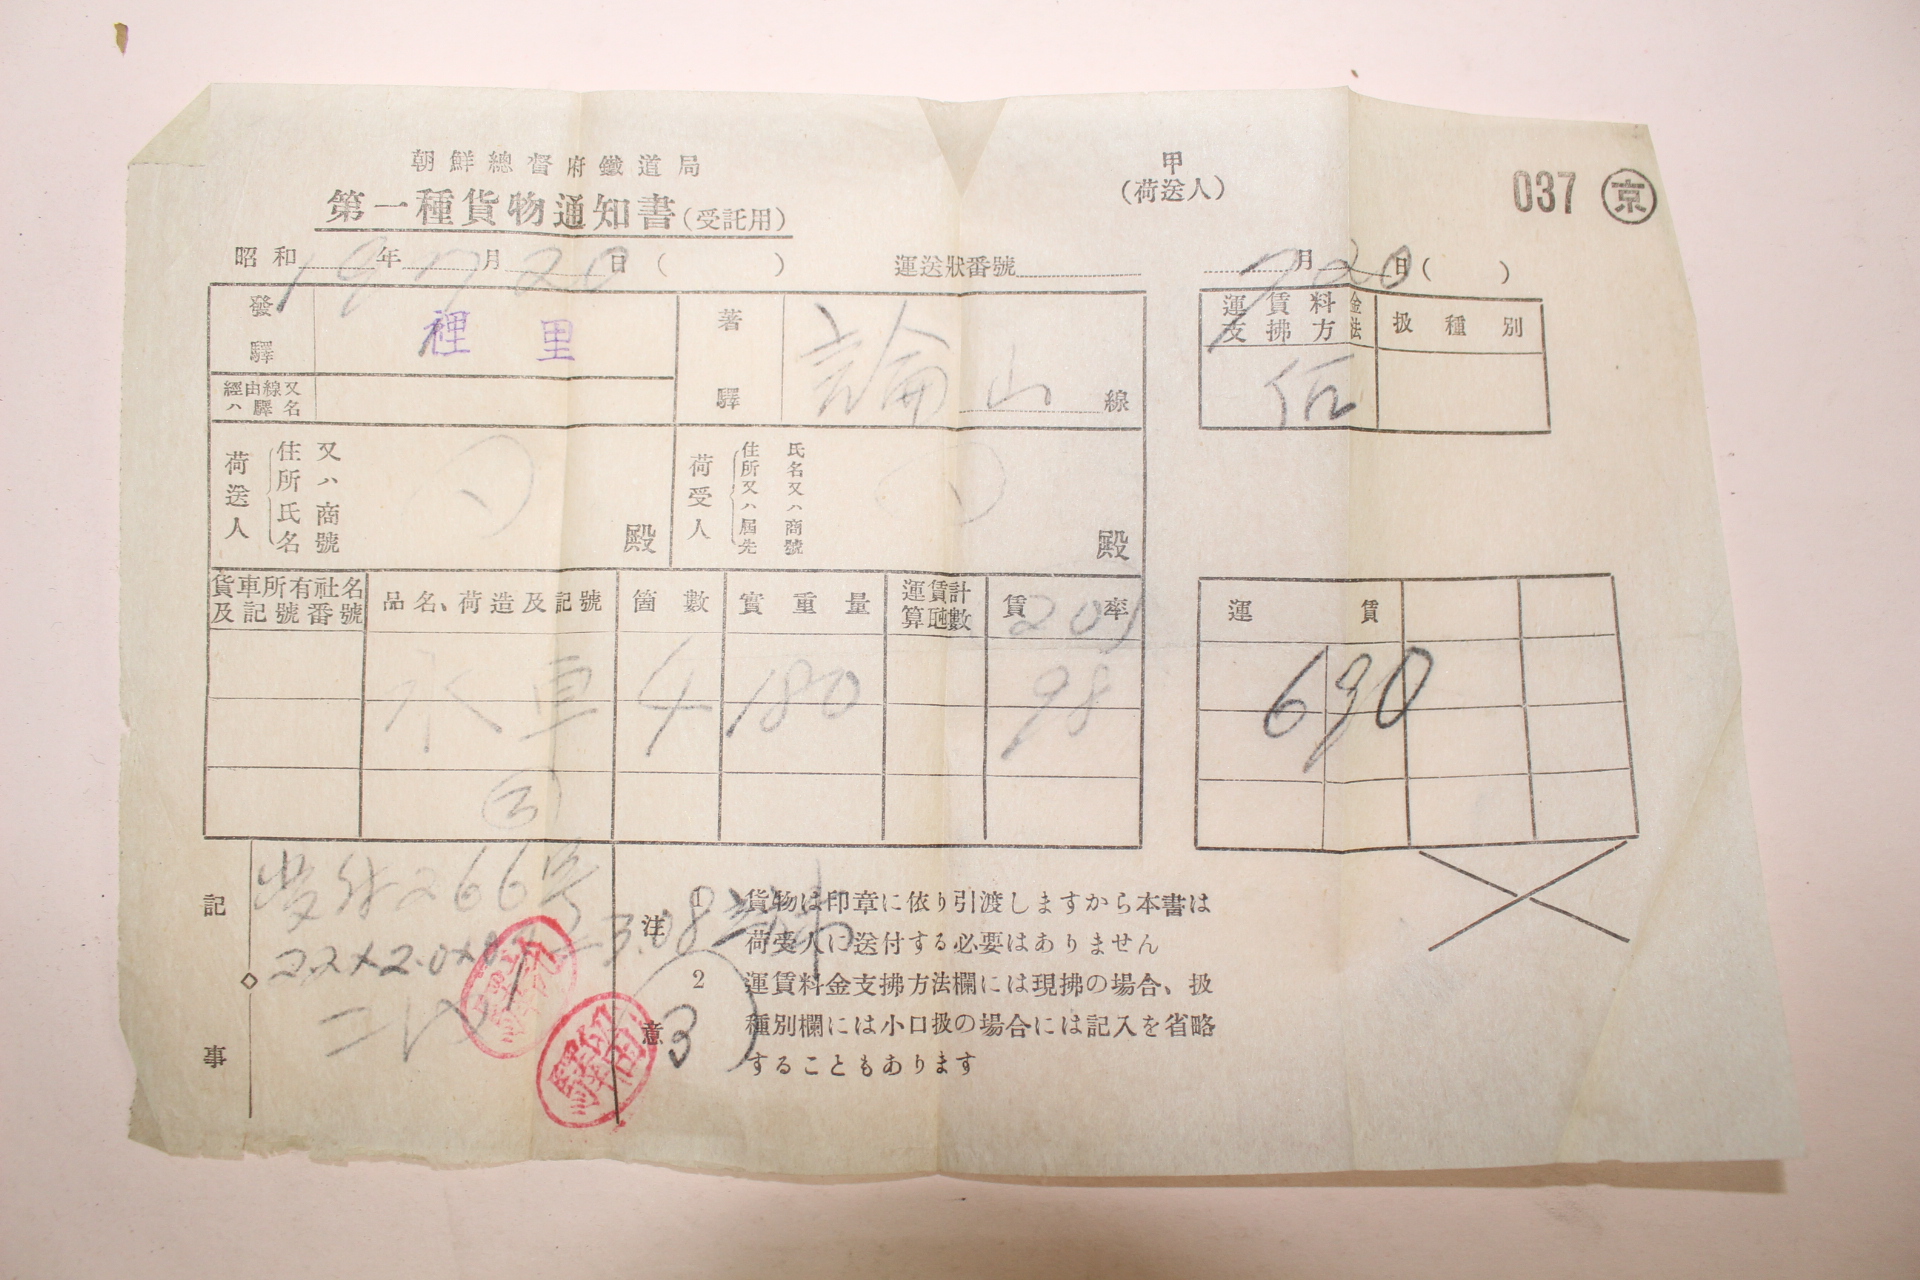 朝鮮總督府鐵道局
甲
第一種貨物通知書(受託用)
(荷送人)
037 京
昭和19年7月20日( )
運送狀番號
7月20日( )
發驛
裡里
著驛
論山線
運賃料金支拂方法
扱種別
經由線又ハ驛名
荷送人
住所氏名又ハ商號
殿
荷受人
住所又ハ屆先
氏名又ハ商號
殿
貨車所有社名及記號番號
品名、荷造及記號
箇數
實重量
運賃計算噸數
賃率
運賃
201
車
4
180
98
690
3
記事
266号
22×2.0×
3.08
3
注意
1 貨物は印章に依り引渡しますから本書は
荷受人に送付する必要はありません
2 運賃料金支拂方法欄には現拂の場合、扱
種別欄には小口扱の場合には記入を省略
することもあります